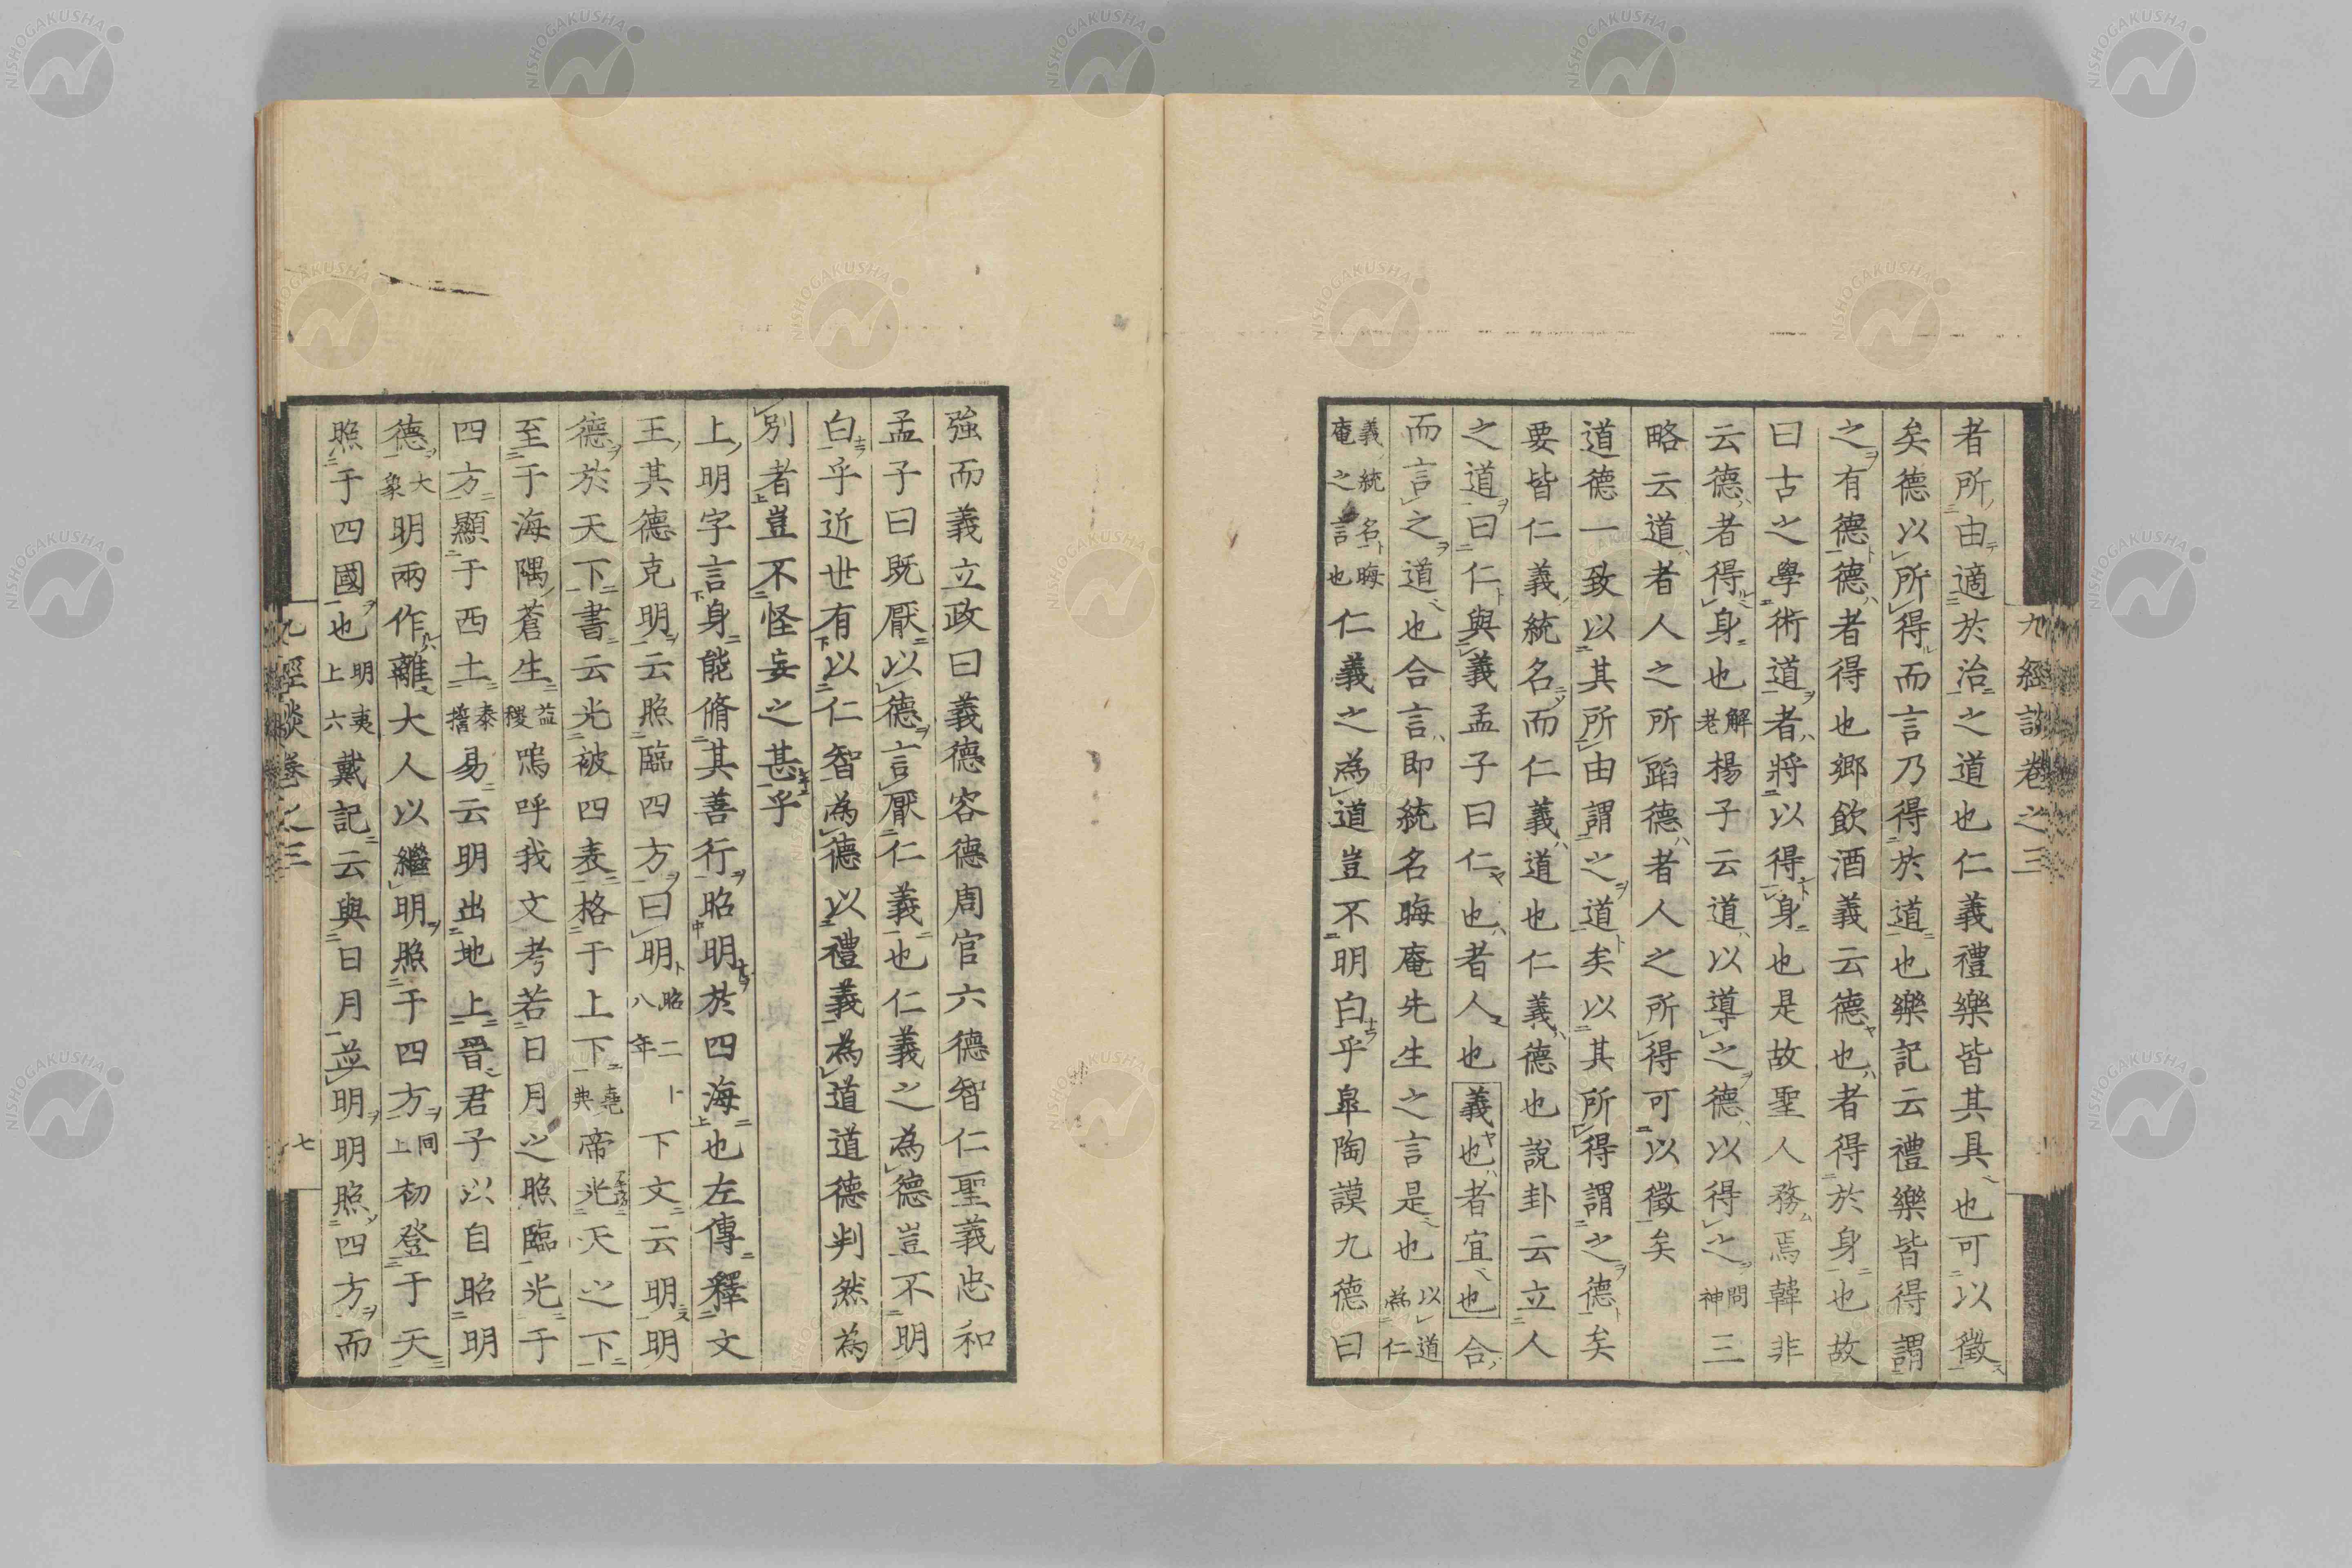 九經談卷之三
者所由適於治之道也仁義禮樂皆其具也可以徵
矣德以所得而言乃得於道也樂記云禮樂皆得謂
之有德德者得也鄉飲酒義云德也者得於身也故
曰古之學術道者將以得身也是故聖人務焉韓非
云德者得身也解老楊子云道以導之德以得之問神三
略云道者人之所蹈德者人之所得可以徵矣
道德一致以其所由謂之道矣以其所得謂之德矣
要皆仁義統名而仁義道也仁義德也說卦云立人
之道曰仁與義孟子曰仁也者人也義也者宜也合
而言之道也合言即統名晦庵先生之言是也以道為仁
義統名晦庵之言也仁義之為道豈不明白乎皐陶謨九德曰
強而義立政曰義德容德周官六德智仁聖義忠和
孟子曰既厭以德言厭仁義也仁義之為德豈不明
白乎近世有以仁智為德以禮義為道道德判然為
別者豈不怪妄之甚乎
上明字言身能脩其善行昭明於四海也左傳釋文
王其德克明云照臨四方曰明昭二十八年下文云明明
德於天下書云光被四表格于上下堯典帝光天之下
至于海隅蒼生益稷嗚呼我文考若日月之照臨光于
四方顯于西土泰誓易云明出地上晉君子以自昭明
德大象明兩作離大人以繼明照于四方同上初登于天
照于四國也明夷上六戴記云與日月並明明照四方而
九經談卷之三
七
NISHOGAKUSHA